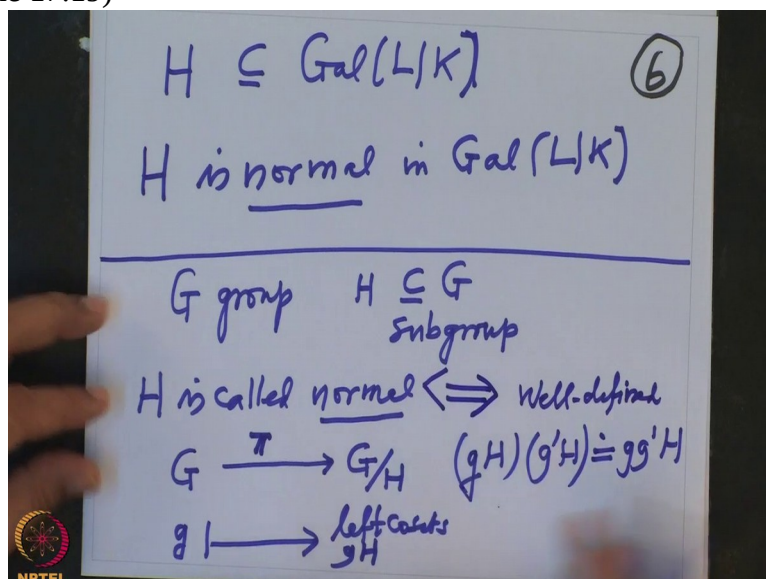 H ⊆ Gal(L|K)
6
H is normal in Gal(L|K)
G group H ⊆ G
Subgroup
H is called normal ⟺ Well-defined
G —π→ G/H (gH)(g'H) ≐ gg'H
g ⟼ left cosets
gH
NPTEL